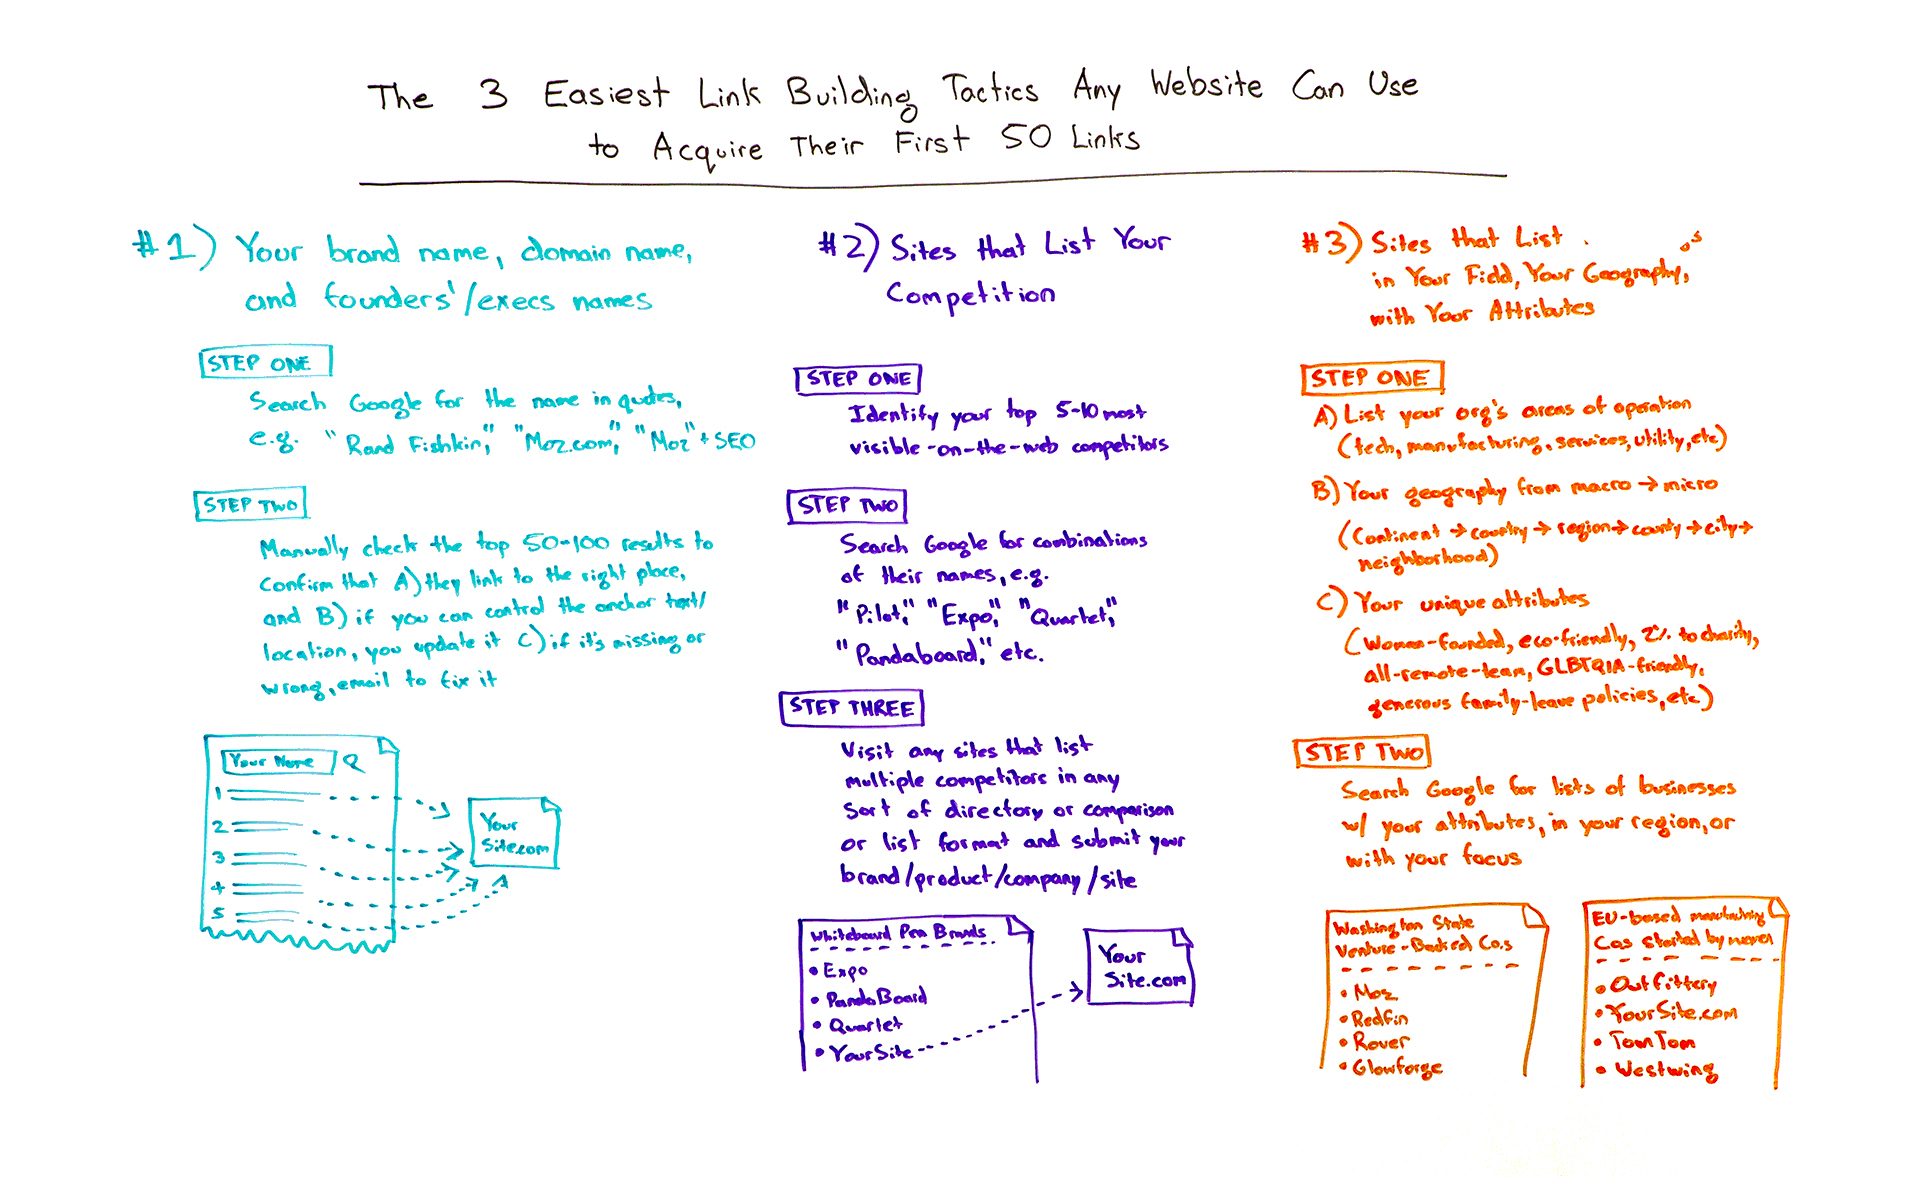 The 3 Easiest Link Building Tactics Any Website Can Use
to Acquire Their First 50 Links
#1) Your brand name, domain name,
and founders'/execs names
STEP ONE
Search Google for the name in quotes,
e.g. "Rand Fishkin," "Moz.com," "Moz" + SEO
STEP TWO
Manually check the top 50-100 results to
confirm that A) they link to the right place,
and B) if you can control the anchor text/
location, you update it C) if it's missing or
wrong, email to fix it
Your Name
1
2
3
4
5
Your
Site.com
#2) Sites that List Your
Competition
STEP ONE
Identify your top 5-10 most
visible-on-the-web competitors
STEP TWO
Search Google for combinations
of their names, e.g.
"Pilot," "Expo," "Quartet,"
"Pandaboard," etc.
STEP THREE
Visit any sites that list
multiple competitors in any
sort of directory or comparison
or list format and submit your
brand/product/company/site
Whiteboard Pen Brands
• Expo
• PandaBoard
• Quartet
• YourSite
Your
Site.com
#3) Sites that List
in Your Field, Your Geography,
with Your Attributes
STEP ONE
A) List your org's areas of operation
(tech, manufacturing, services, utility, etc)
B) Your geography from macro → micro
(Continent → country → region → county → city →
neighborhood)
C) Your unique attributes
(Woman-founded, eco-friendly, 2% to charity,
all-remote-team, GLBTQIA-friendly,
generous family-leave policies, etc)
STEP TWO
Search Google for lists of businesses
w/ your attributes, in your region, or
with your focus
Washington State
Venture-Backed Co.s
• Moz
• Redfin
• Rover
• Glowforge
EU-based manufacturing
Cos started by women
• Outfittery
• YourSite.com
• TomTom
• Westwing